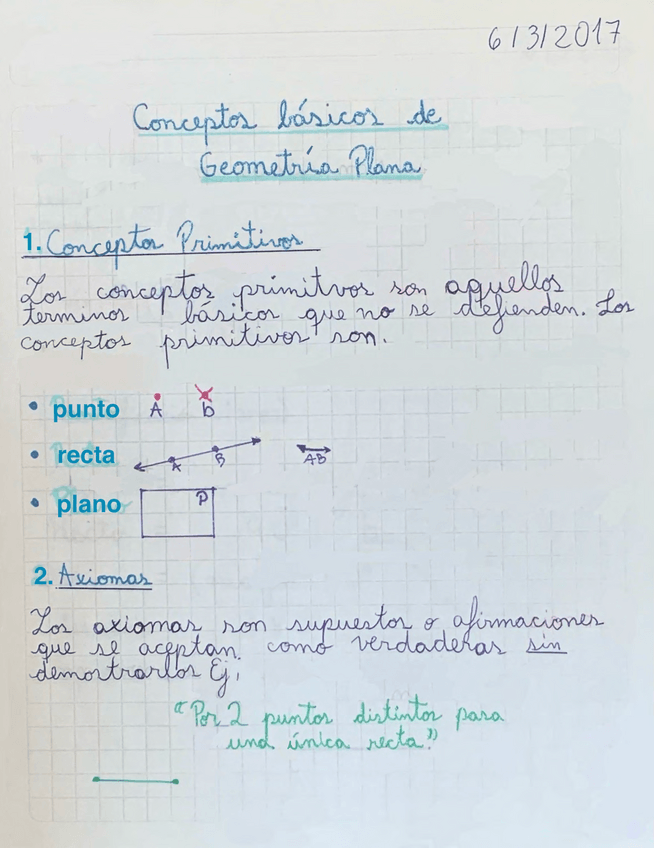 6/3/2017
Conceptos básicos de
Geometría Plana
1. Conceptos Primitivos
Los conceptos primitvos son aquellos
terminos básicos que no se defienden. Los
conceptos primitivos son.
• punto A b
• recta A B AB
• plano P
2. Axiomas
Los axiomas son supuestos o afirmaciones
que se aceptan como verdaderas sin
demostrarlos Ej,
"Por 2 puntos distintos para
una única recta."